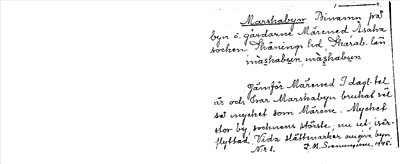 Marshabyn Binamn på
byn o. gårdarne Mårened Åsaka
socken Skånings hd, Skarab. län
màshabỵn, màshabỵen
Jämför Mårened I dagl. tal
är och har Marshabyn brukat väl
så mycket som Mårene. Mycket
stor by, socknens största, nu ut-
flyttad. Vida slättmarker omgiva byn